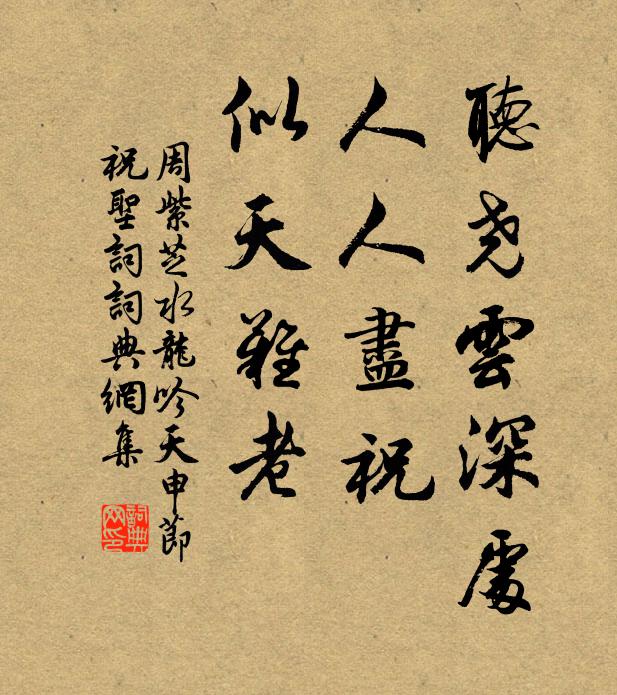 聽堯雲深處
人人盡祝
似天難老
周紫芝水龍吟天申節
祝聖詞詞典網集
詞典网印